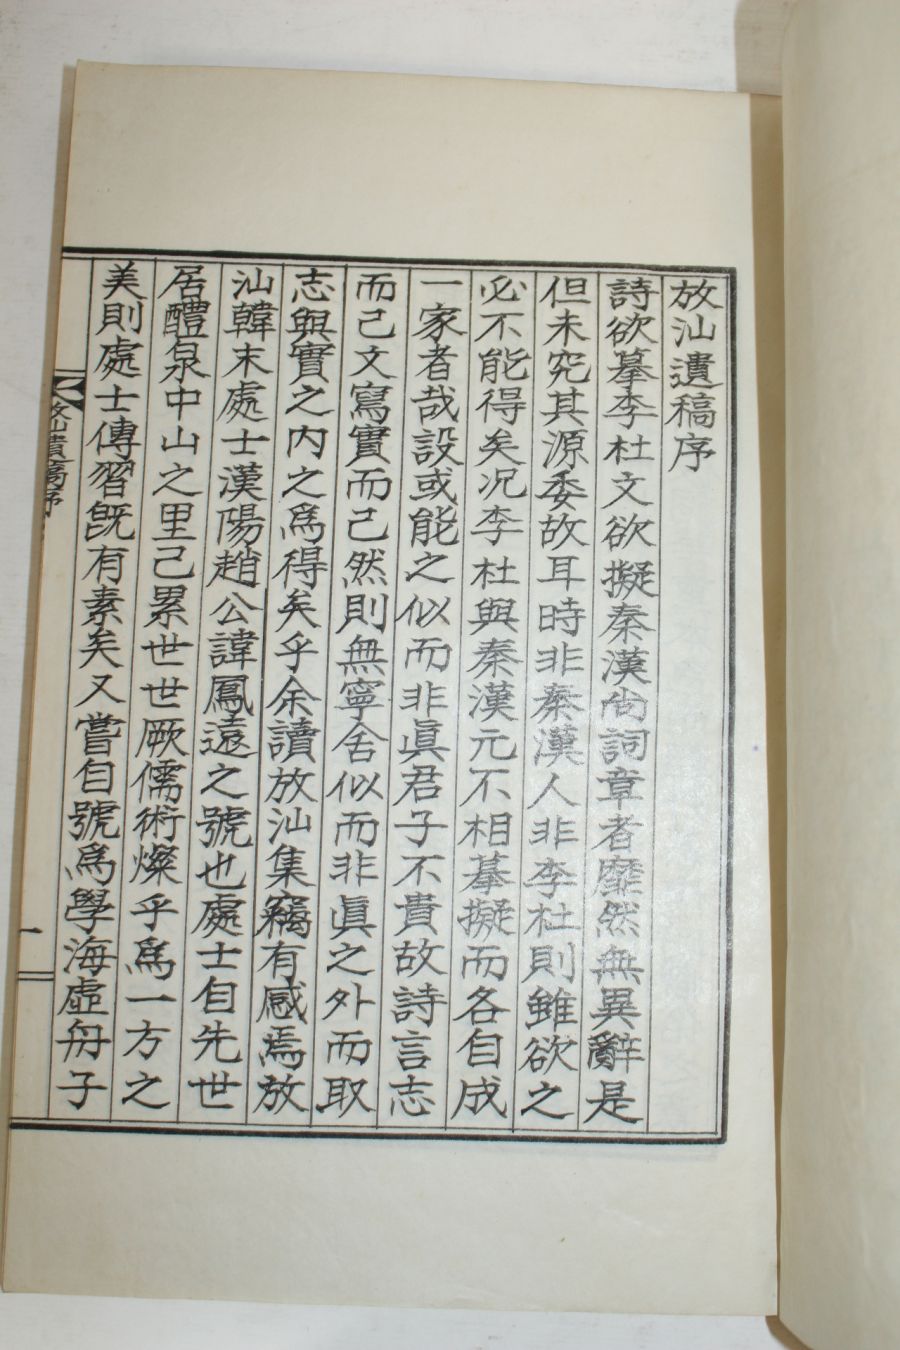 放汕遺稿序
詩欲摹李杜文欲擬秦漢尙詞章者靡然無異辭是
但未究其源委故耳時非秦漢人非李杜則雖欲之
必不能得矣况李杜與秦漢元不相摹擬而各自成
一家者哉設或能之似而非眞君子不貴故詩言志
而已文寫實而已然則無寧舍似而非眞之外而取
志與實之内之爲得矣乎余讀放汕集竊有感焉放
汕韓末處士漢陽趙公諱鳳遠之號也處士自先世
居醴泉中山之里已累世世厥儒術燦乎爲一方之
美則處士傳習旣有素矣又嘗自號爲學海虛舟子
放汕遺稿序
一